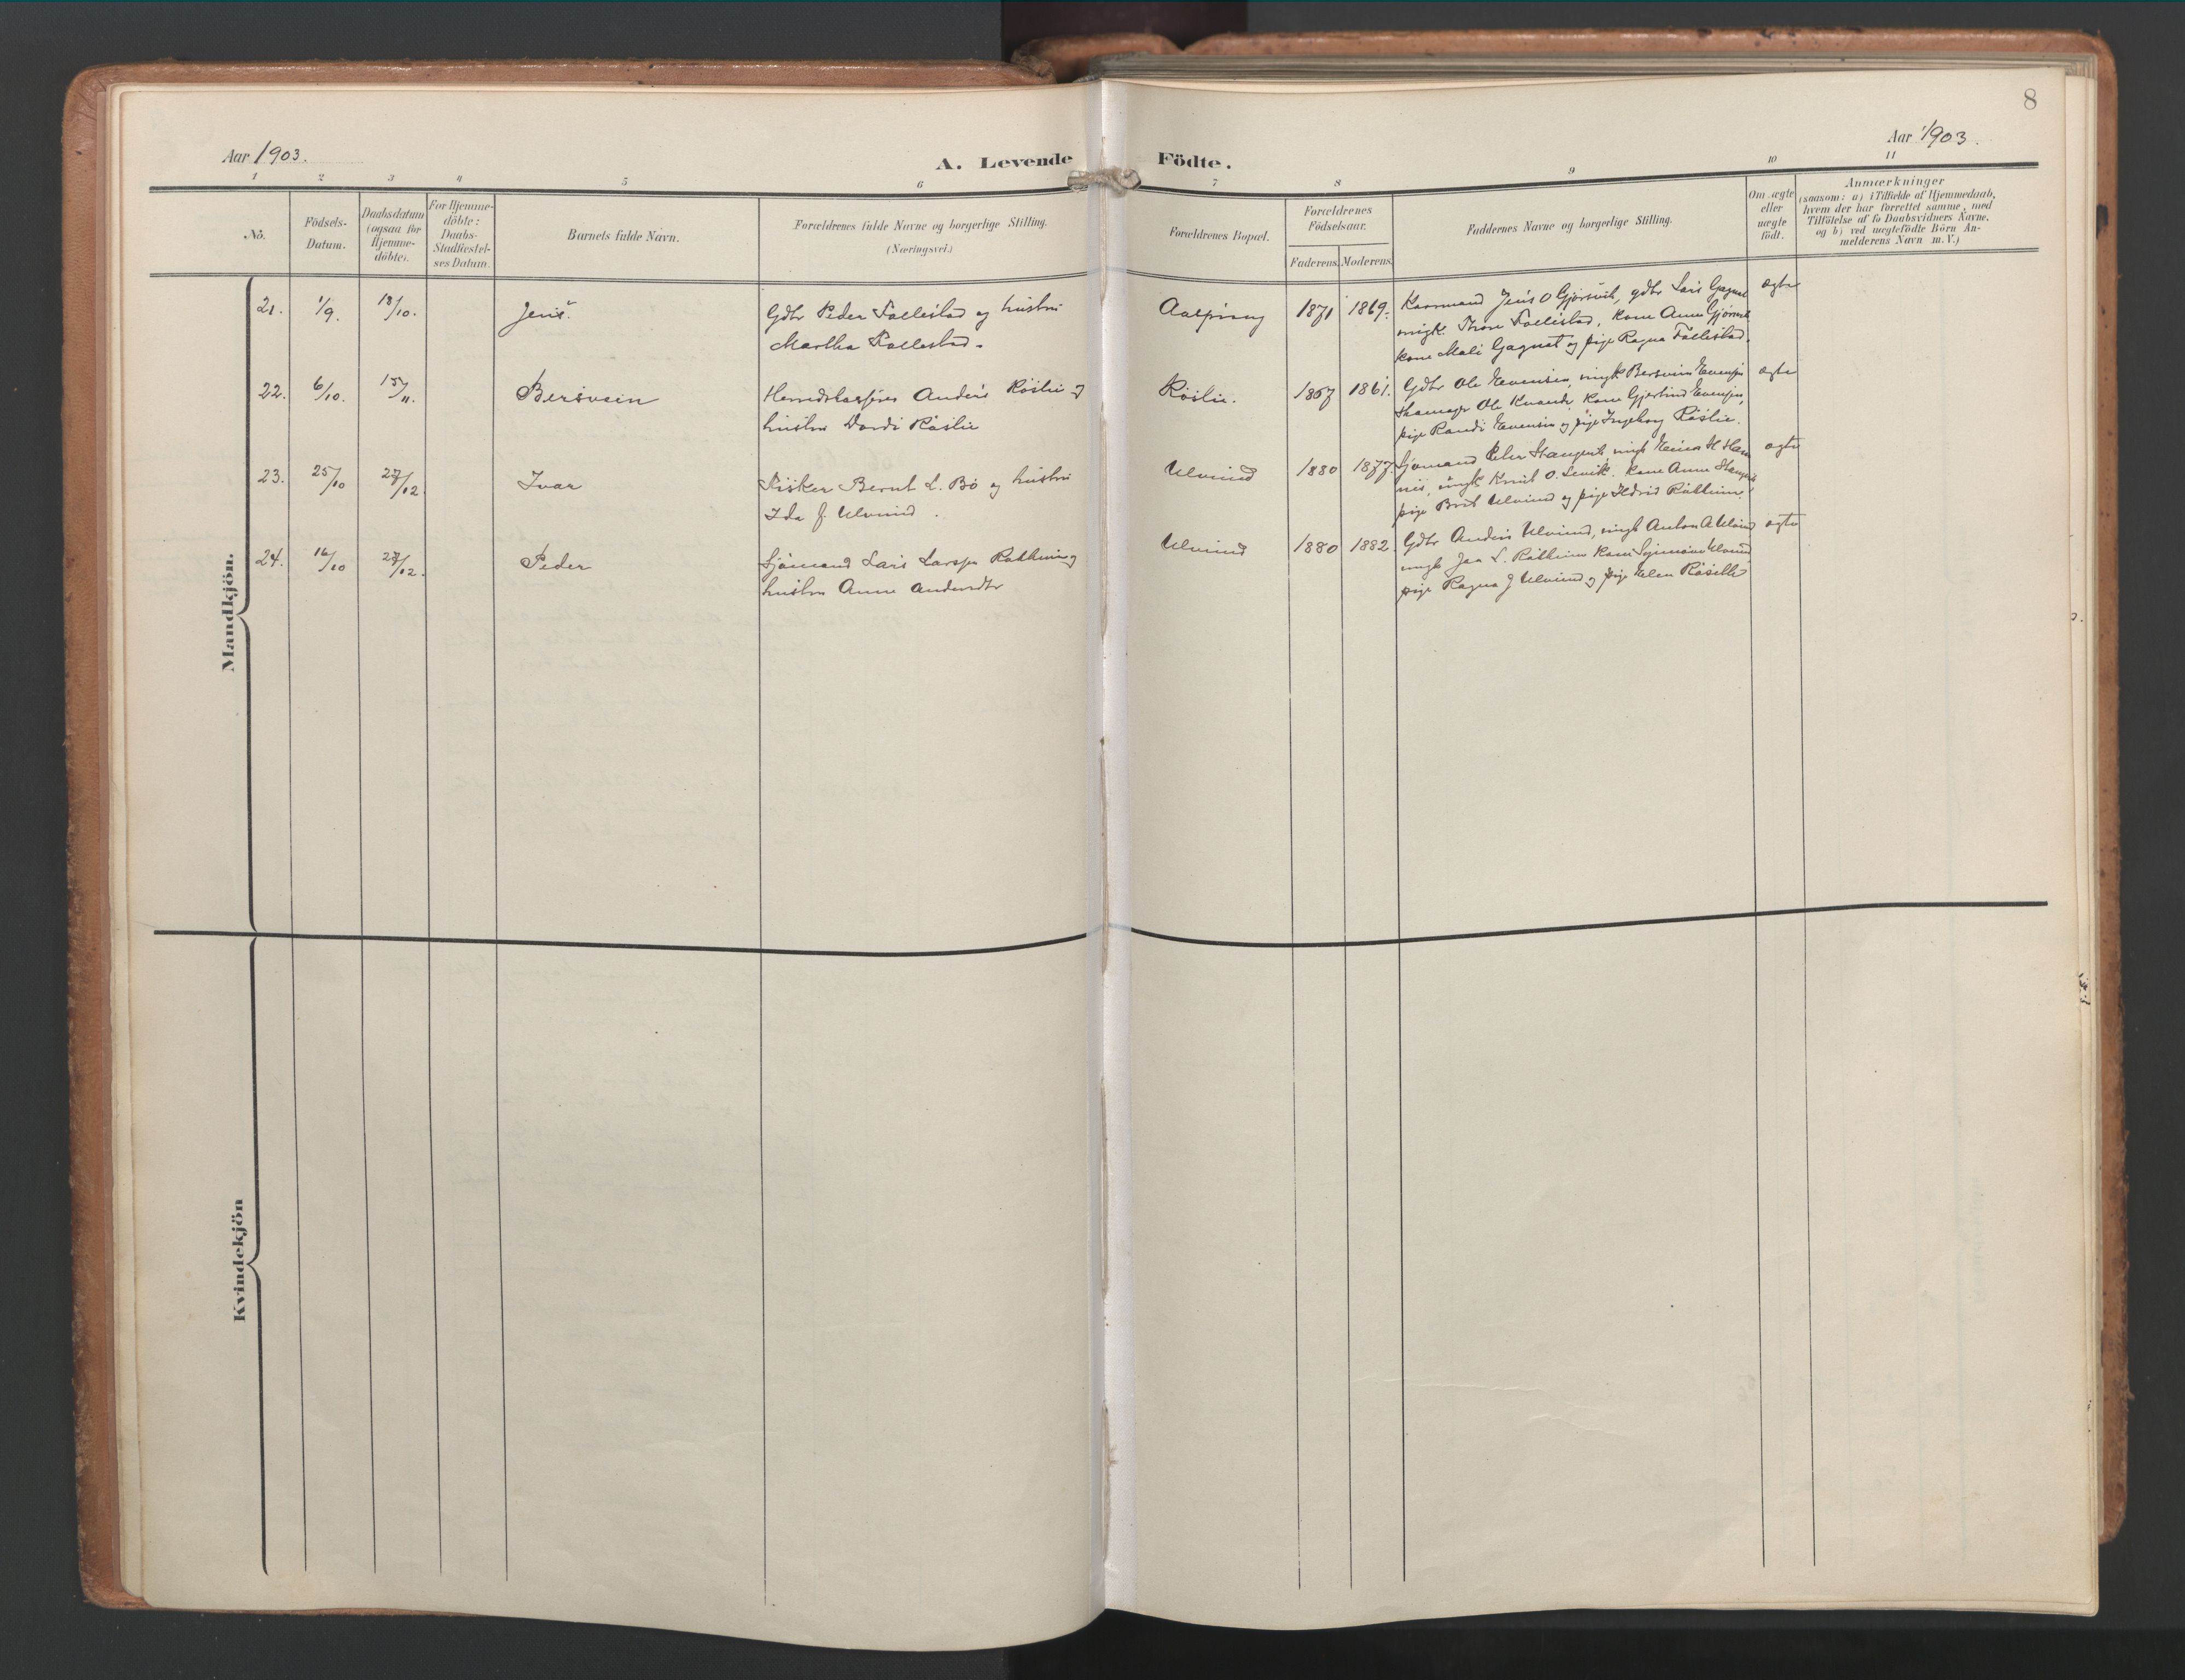 8
Aar 1903.
Aar 1903.
A. Levende Födte.
1 2 3 4 5 6 7 8 9 10 11
No.
Födsels-
Datum.
Daabsdatum
(ogsaa for
Hjemme-
döbte).
For Hjemme-
döbte:
Daabs-
Stadfæstel-
ses Datum.
Barnets fulde Navn.
Forældrenes fulde Navne og borgerlige Stilling.
(Næringsvei.)
Forældrenes Bopæl.
Forældrenes
Födselsaar.
Faderens. Moderens.
Faddernes Navne og borgerlige Stilling.
Om ægte
eller
uægte
födt.
Anmærkninger
(saasom: a) i Tilfælde af Hjemmedaab,
hvem der har forrettet samme, med
Tilföielse af to Daabsvidners Navne,
og b) ved uægtefödte Börn An-
melderens Navn m. V.)
Mandkjön.
21. 1/9. 18/10. Jens. Gdbr Peder Follestad og hustru
Martha Follestad.
1871 1869.
Kaarmand Jens O Gjörsvik, gdbr Lars Gagnat
ungk. Thore Follestad, kone Anne
kone Mali Gagnat og pige Ragna Follestad.
ægte
22. 6/10. 15/11. Bersvein Anders Röslie og
hustru Dordi Röslie
Röslie. 1867 1861.
Gdbr Ole Evensen, ungk Bersvein Evensen
Ole kone Gjertrud Evensen,
pige Randi Evensen og pige Ingeborg Röslie.
ægte
23. 25/10 27/12. Ivar Fisker Bernt L. Bö og hustru
Ida J. Ulvund.
Ulvund 1880 1877.
Sjömand Peter ungk
ungk Knut O. kone Anne
pige Brit Ulvund og pige
ægte
24. 16/10 27/12. Peder Sjömand Lars Larsen og
hustru Anne Andersdtr
Ulvund 1880 1882.
Gdbr Anders Ulvund, ungk Anton A Ulvund
ungk L. kone Ulvund
pige Ragna J Ulvund og pige Elen
ægte
Kvindekjön